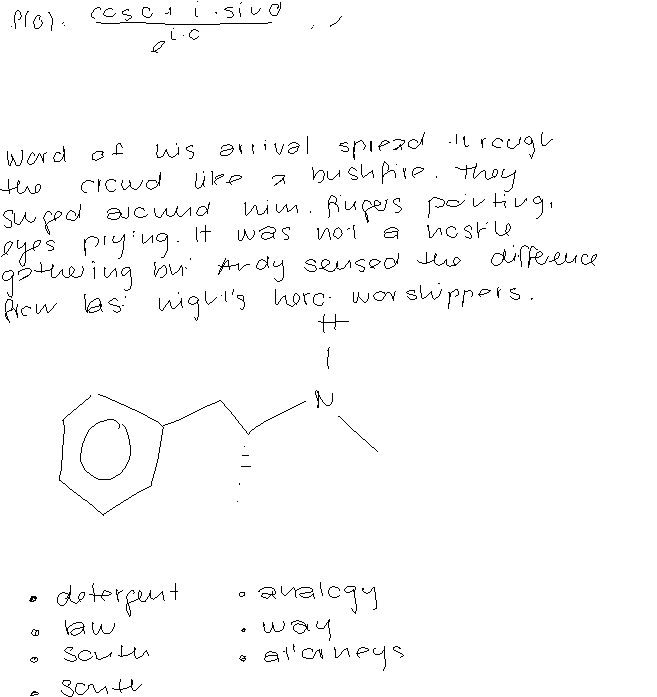 P(θ) = (cos θ + i · sin θ) / e^{i·θ}
Word of his arrival spread through
the crowd like a bushfire. They
surged around him. Fingers pointing,
eyes prying. It was not a hostile
gathering but Andy sensed the difference
from last night's hero-worshippers.
H
N
• detergent • analogy
• law • way
• south • attorneys
• south